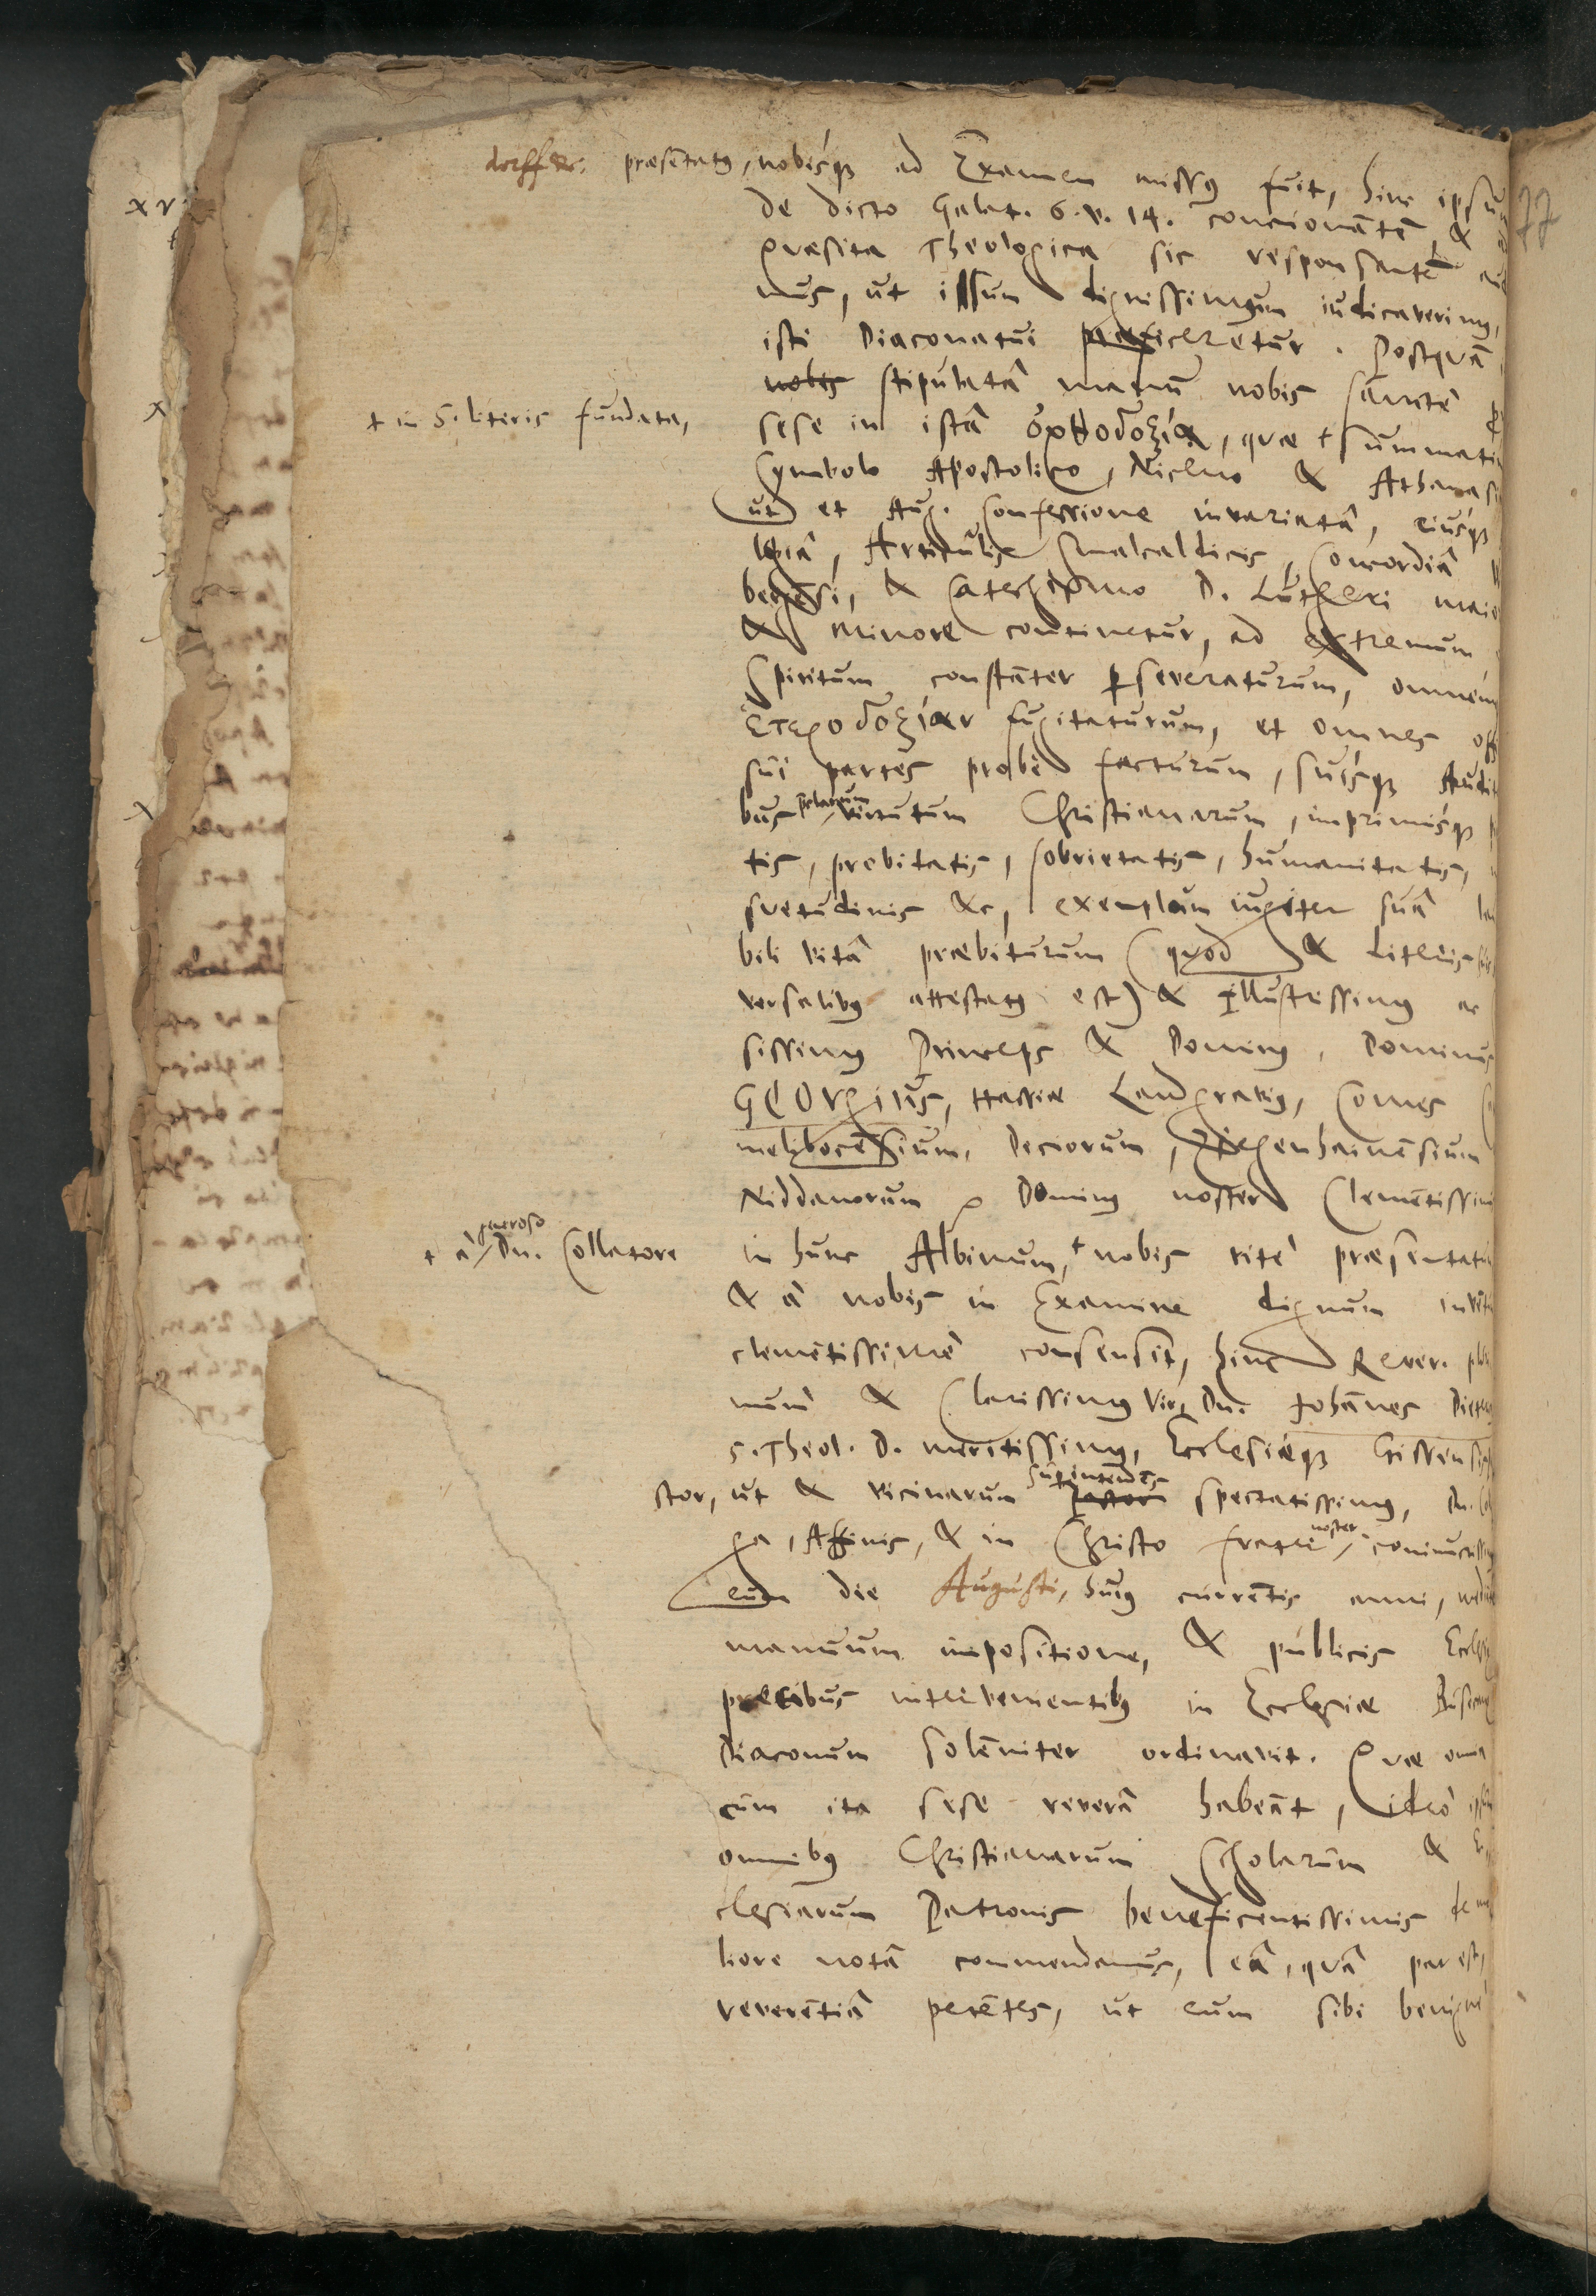 dorff &c. præsentatus, nobisque ad Examen missus fuit, hinc ipsum
de dicto Galat. 6. v. 14. concionantem, &
quæsita Theologica sic responsantem
mus, ut issum dignissimum iudicaverimus,
isti Diaconatui præficeretur. Postquam
nobis stipulatâ manu nobis sanctè
sese in istâ ὀρθοδοξίᾳ, quæ †summati
† in S. literis fundata,
Symbolo Apostolico, Niceno & Athanasi
ut et Aug. Confessione invariatâ, eiusque
logiâ, Articulis Smalcaldicis, Concordiâ
bergensi, & Catechismo D. Lutheri maio
& minore continetur, ad extremum
Spiritum constanter perseveraturum, omnem
ἑτεροδοξίαν fugitaturum, et omnes off
sui partes probè facturum, suisque Audit
bus virtutum Christianarum, imprimisque
tis, probitatis, sobrietatis, humanitatis,
suetudinis &c, exemplum iugiter suâ
bili vitâ præbiturum (quod & Literis
versalibus attestatus est) & illustrissimus ac
sissimus Princeps & Dominus, Dominus
GEORgius, Hassiæ Landgravius, Comes
melibocensium, Deciorum, Ziegenhainensium
Niddanorum &c Dominus noster Clementissim
in hunc Albinum, † nobis ritè præsentatu
† à generoso Dn. Collatore
& à nobis in Examine dignum inven
clementissimè consensit, hinc Rever. plu
mum & Clarissimus Vir Dn. Johannes Diete
S. Theol. D. meritissimus, Ecclesiæque Gissensis
stor, ut & vicinarum Superintendens pastor spectatissimus, Dn.
ga, Affinis, & in Christo frater noster coniunctissim
eum die Augusti, huius currentis anni,
manuum impositione, & publicis Eccles
precibus intervenientibus in Ecclesiæ
Diaconum solenniter ordinavit. Quæ omnia
cum ita sese reverâ habeant, ideò
omnibus Christianarum Scholarum & Ec
clesiarum Patronis beneficentissimis de me
liore notâ commendamus, eâ, quâ par est,
reverentiâ petentes, ut eum sibi benignè
77